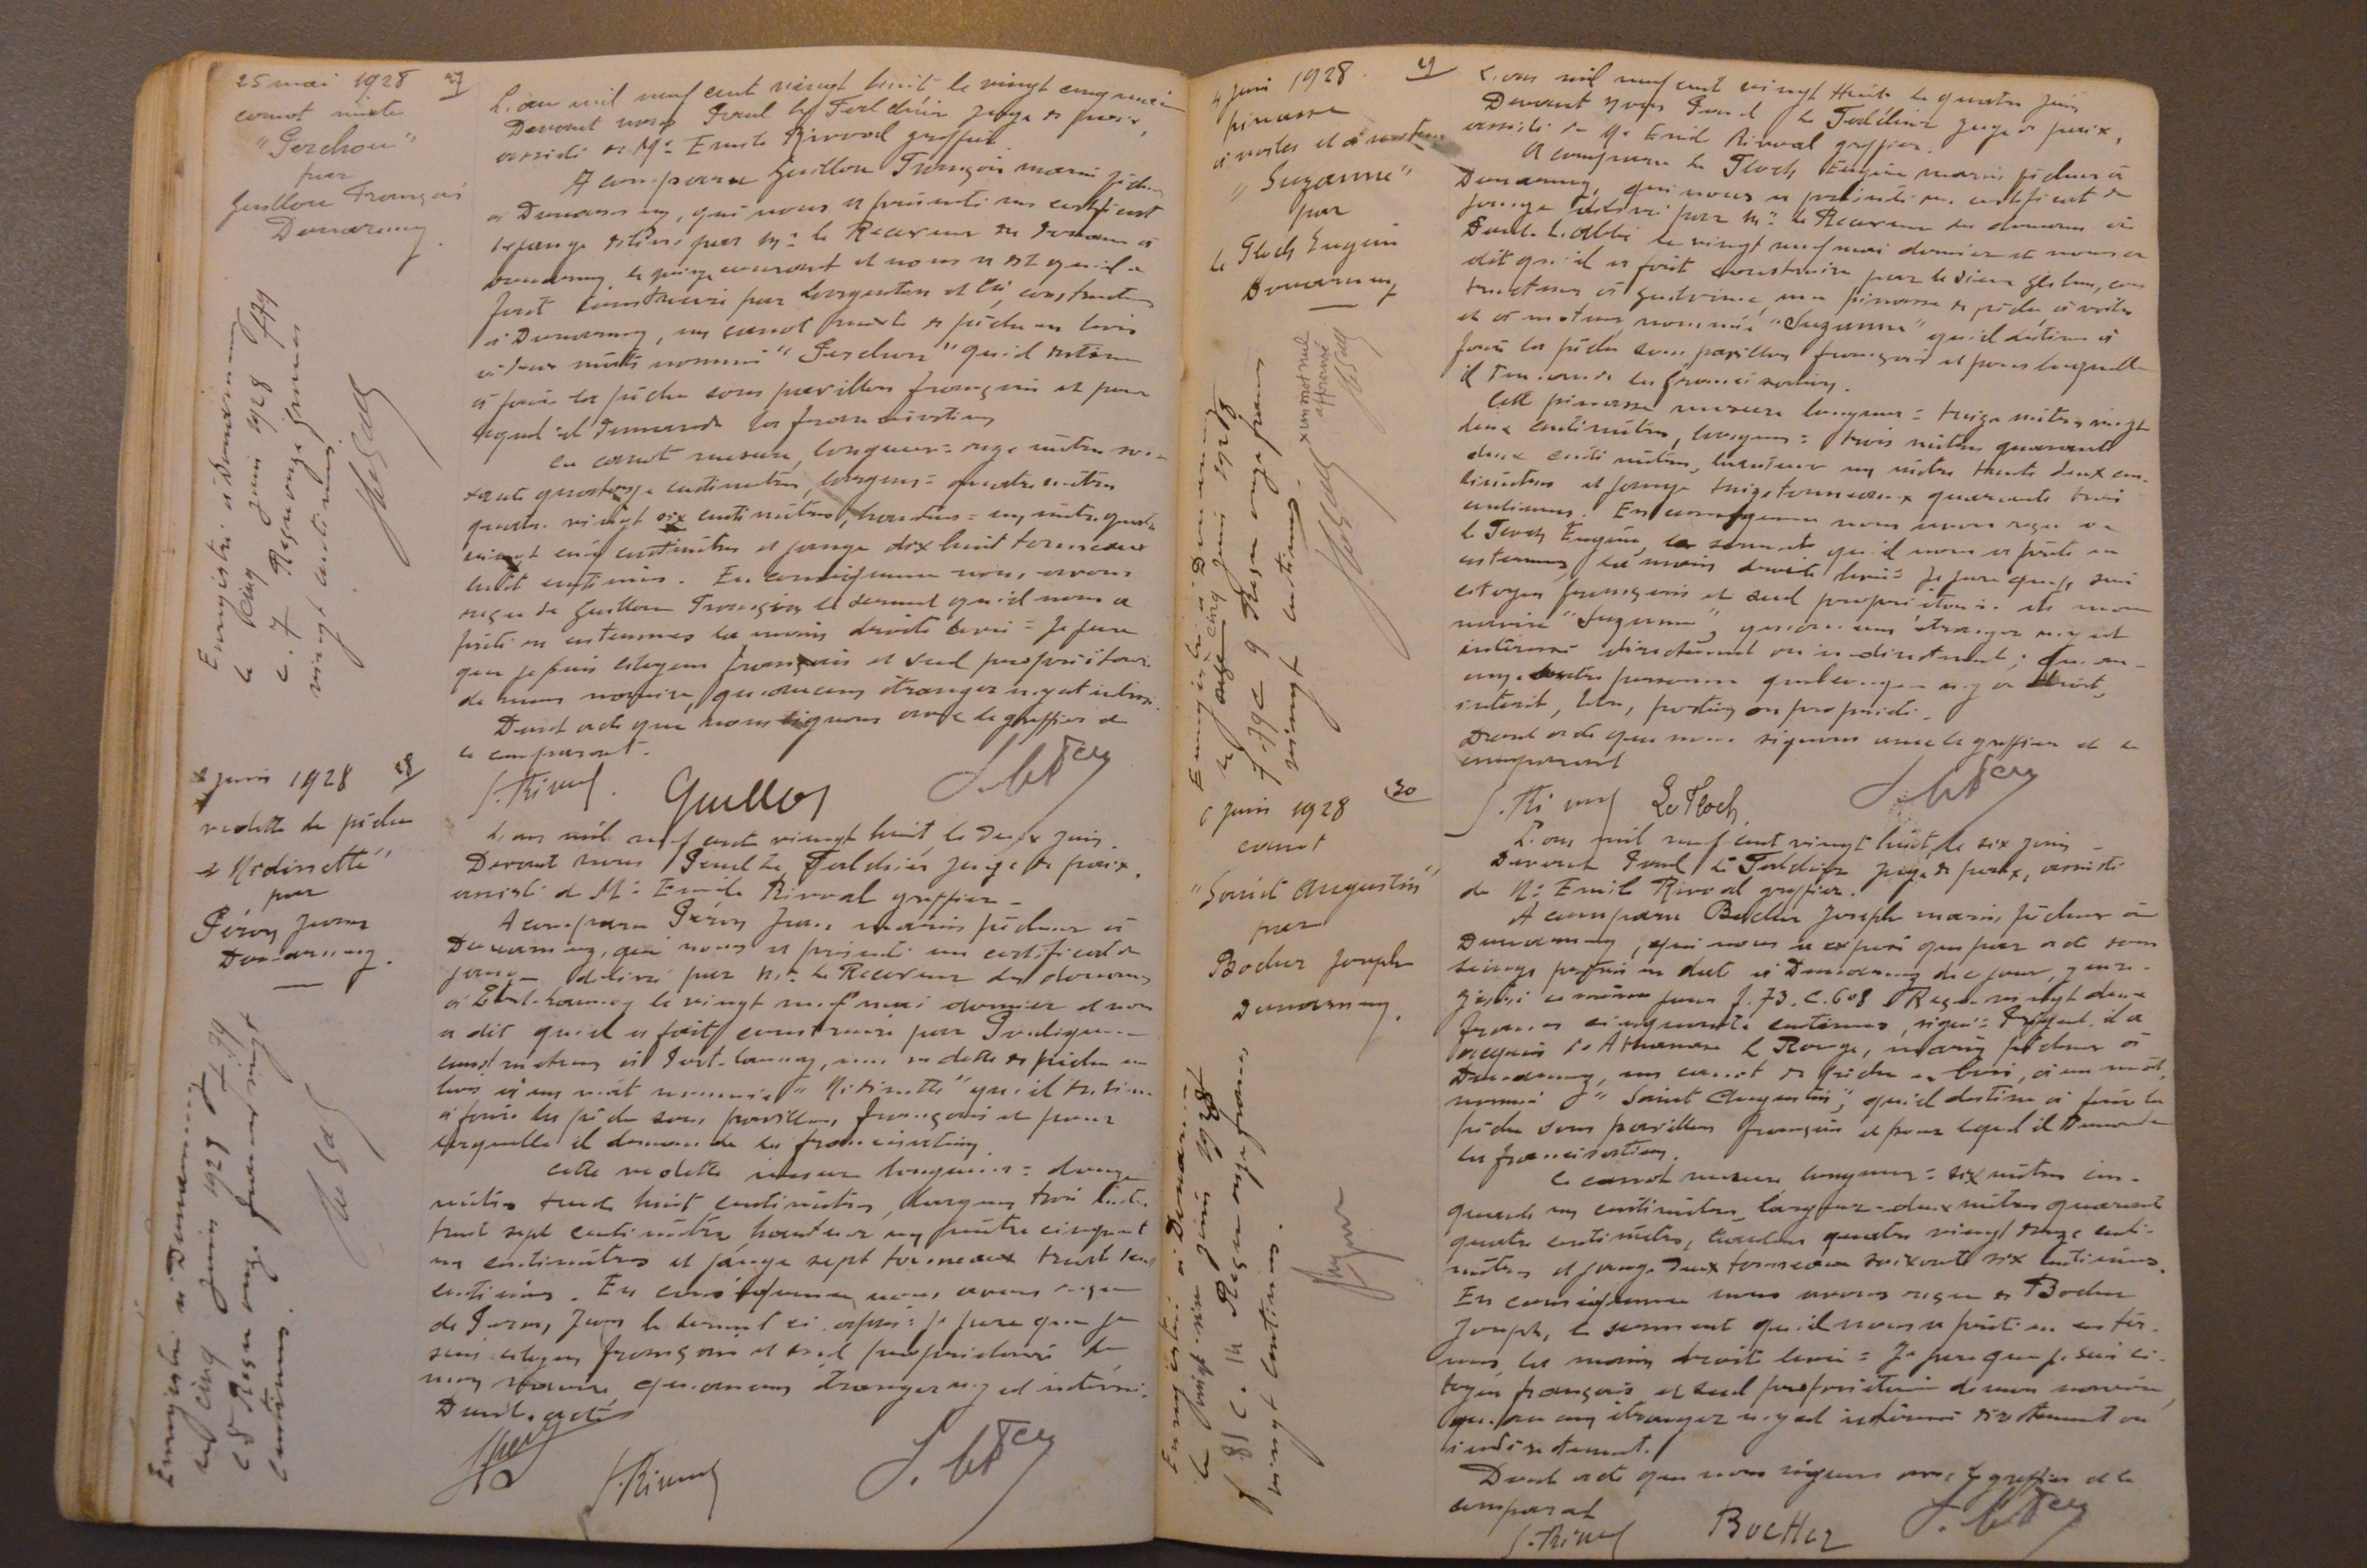 25 mai 1928 27
canot mixte
"Perchou"
par
Guillou François
Douarnenez.
Enregistré à Douarnenez
le cinq juin 1928 f 79
c. 7 Reçu onze francs
vingt centimes
L'an mil neuf cent vingt huit le vingt cinq mai
Devant nous Paul Le Juge de paix,
assisté de Me Emile Rivoal greffier
A comparu Guillou François marin pêcheur
à Douarnenez, qui nous a présenté un certificat
de jauge délivré par Mr le Receveur des douanes à
Douarnenez le quinze courant et nous a dit qu'il a
fait construire par et Cie, constructeurs
à Douarnenez, un canot mixte de pêche en bois
à deux mâts nommé "Perchou" qu'il destine
à faire la pêche sous pavillon français et pour
lequel il demande la francisation
Ce canot mesure, longueur = onze mètres soi-
xante quatorze centimètres, largeur = quatre mètres
quatre vingt six centimètres, hauteur = un mètre quatre
vingt cinq centimètres et jauge dix huit tonneaux
huit centièmes. En conséquence nous avons
reçu de Guillou François le serment qu'il nous a
prêté en ces termes la main droite levée = Je jure
que je suis citoyen français et seul propriétaire
de mon navire, qu'aucun étranger n'y est intéressé.
Dont acte que nous signons avec le greffier et
le comparant.
E. Rivoal. Guillou
2 juin 1928 28
vedette de pêche
"Modinette"
par
Péron Jean
Douarnenez.
Enregistré à Douarnenez
le cinq juin 1928 f. 79
c 8 Reçu onze francs vingt
centimes.
L'an mil neuf cent vingt huit, le deux juin.
Devant nous Paul Le Juge de paix,
assisté de Me Emile Rivoal greffier -
A comparu Péron Jean marin pêcheur à
Douarnenez, qui nous a présenté un certificat de
jauge délivré par Mr le Receveur des douanes
à Port-Launay le vingt neuf mai dernier et nous
a dit qu'il a fait construire par
constructeur à Port-Launay, une vedette de pêche en
bois à un mât nommée "Modinette" qu'il destine
à faire la pêche sous pavillon français et pour
laquelle il demande la francisation
Cette vedette mesure longueur = douze
mètres trente huit centimètres, largeur trois mètres
trente sept centimètres, hauteur un mètre cinquante
un centimètres et jauge sept tonneaux trente
centièmes. En conséquence nous avons reçu
de Péron Jean le serment ci-après: je jure que je
suis citoyen français et seul propriétaire de
mon navire, qu'aucun étranger n'y est intéressé.
Dont acte
E. Rivoal
4 juin 1928. 29
pinasse
à voiles et à moteur
"Suzanne"
par
Le Floch Eugène
Douarnenez
Enregistré à Douarnenez
le cinq juin 1928
f. 79 c 9 Reçu onze francs
vingt centimes.
x un mot nul
approuvé
L'an mil neuf cent vingt huit le quatre juin
Devant nous Paul Le Juge de paix,
assisté de Me Emile Rivoal greffier.
A comparu Le Floch Eugène marin pêcheur à
Douarnenez, qui nous a présenté un certificat de
jauge délivré par Mr le Receveur des douanes à
Pont-l'Abbé le vingt neuf mai dernier et nous a
dit qu'il a fait construire par le sieur Gléhen, cons
tructeur à Guilvinec, une pinasse de pêche à voiles
et à moteur, nommée "Suzanne" qu'il destine à
faire la pêche sous pavillon français et pour laquelle
il demande la francisation.
Cette pinasse mesure longueur = treize mètres vingt
deux centimètres, largeur = trois mètres quarante
deux centimètres, hauteur un mètre trente deux cen-
timètres et jauge treize tonneaux quarante trois
centièmes. En conséquence nous avons reçu de
Le Floch Eugène, le serment qu'il nous a prêté en
ces termes, la main droite levée = Je jure que je suis
citoyen français et seul propriétaire de mon
navire "Suzanne", qu'aucun étranger n'y est
intéressé directement ou indirectement; qu'au-
cune autre personne quelconque n'y a droit,
intérêt, titre, portion ou propriété.
Dont acte que nous signons avec le greffier et le
comparant
E. Rivoal Le Floch.
6 juin 1928 30
canot
"Saint Augustin"
par
Bocher Joseph
Douarnenez.
Enregistré à Douarnenez
le vingt six juin 1928
f 81 C. 14 Reçu onze francs
vingt centimes.
L'an mil neuf cent vingt huit, le six juin -
Devant Paul Le Juge de paix, assisté
de Me Emile Rivoal greffier.
A comparu Bocher Joseph marin pêcheur à
Douarnenez, qui nous a exposé que par acte sous
seings privés en date à Douarnenez de ce jour, enre-
gistré ce même jour f. 73. C. 608 Reçu vingt deux
francs cinquante centimes, signé: il a
acquis de Athanase Le Rouge, marin pêcheur à
Douarnenez, un canot de pêche en bois, à un mât,
nommé "Saint Augustin", qu'il destine à faire la
pêche sous pavillon français et pour lequel il demande
la francisation.
Ce canot mesure longueur = six mètres cin-
quante un centimètres, largeur = deux mètres quarante
quatre centimètres, hauteur quatre vingt treize centi-
mètres et jauge deux tonneaux soixante six centièmes.
En conséquence nous avons reçu de Bocher
Joseph, le serment qu'il nous a prêté en ces ter-
mes, la main droite levée = Je jure que je suis ci-
toyen français et seul propriétaire de mon navire,
qu'aucun étranger n'y est intéressé directement ou
indirectement.
Dont acte que nous signons avec le greffier et le
comparant
E. Rivoal Bocher